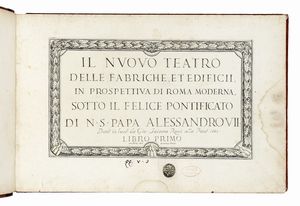 IL NVOVO TEATRO
DELLE FABRICHE, ET EDIFICII,
IN PROSPETTIVA DI ROMA MODERNA,
SOTTO IL FELICE PONTIFICATO
DI N. S. PAPA ALESSANDRO VII
LIBRO PRIMO